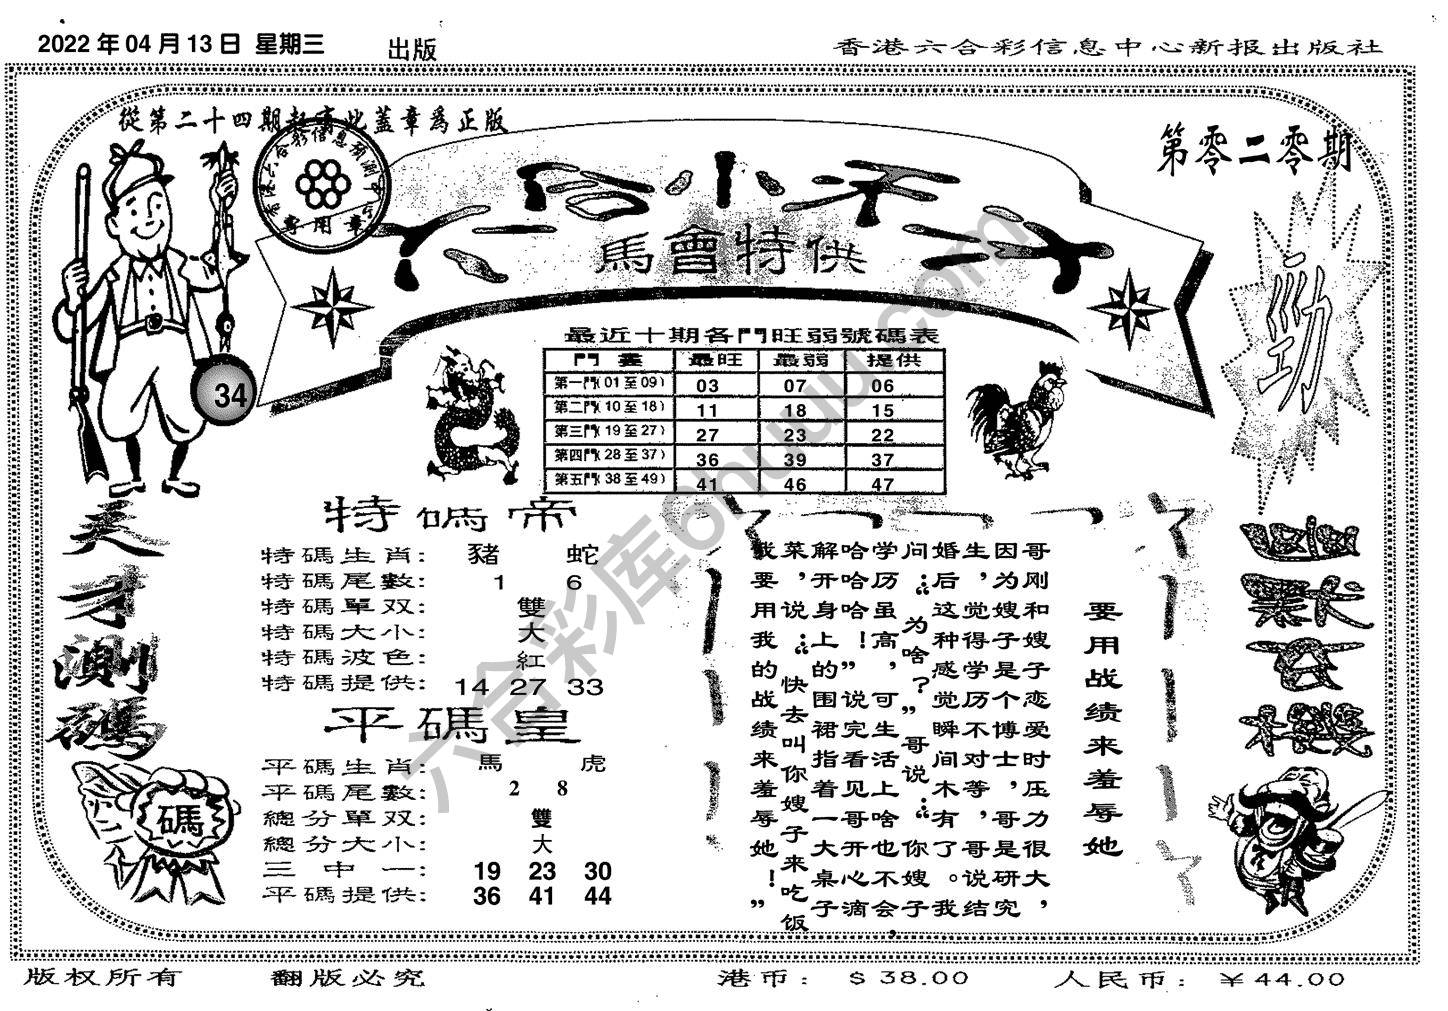 2022 年 04 月 13 日 星期三 出版
香港六合彩信息中心新报出版社
從第二十四期起有此蓋章爲正版
第零二零期
香港六合彩信息預測中心
專用章
六合小不大
馬會特供
勁
34
最近十期各門旺弱號碼表
門 最旺 最弱 提供
第一門(01至09) 03 07 06
第二門(10至18) 11 18 15
第三門(19至27) 27 23 22
第四門(28至37) 36 39 37
第五門(38至49) 41 46 47
天才測碼
碼
特碼帝
特碼生肖: 豬 蛇
特碼尾數: 1 6
特碼單双: 雙
特碼大小: 大
特碼波色: 紅
特碼提供: 14 27 33
平碼皇
平碼生肖: 馬 虎
平碼尾數: 2 8
總分單双: 雙
總分大小: 大
三中一: 19 23 30
平碼提供: 36 41 44
要用战绩来羞辱她
哥刚和嫂子恋爱时压力很大，
因为嫂子是个博士，哥是研究
生，觉得学历不对等，哥说结
婚后这种感觉瞬间木有了。我
问：“为啥？”哥说：“你嫂子
学历虽高，可生活上啥也不会，
哈哈哈！”说完看见哥开心滴
解开身上的围裙指着一大桌子
菜，说：“快去叫你嫂子来吃饭
我要用我的战绩来羞辱她！”
六合彩库6huuu.com
版权所有 翻版必究 港币: $38.00 人民币: ￥44.00